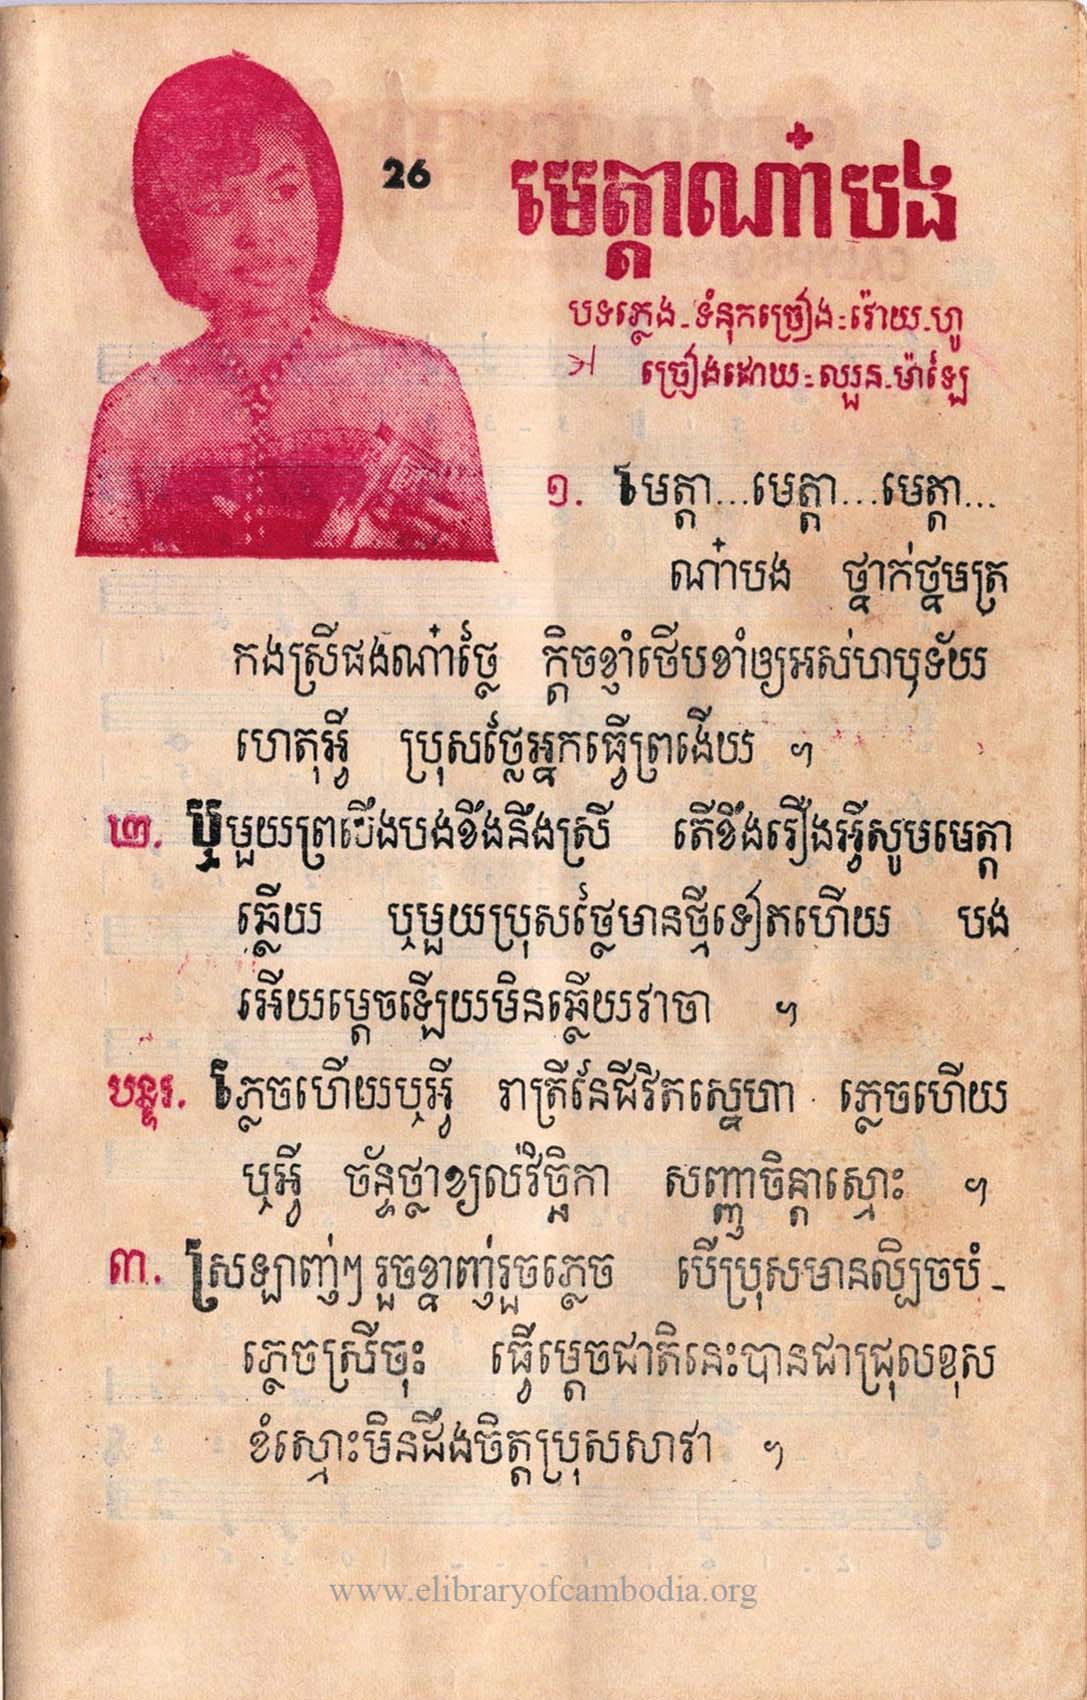 26
មេត្តាណ៎ាបង
បទភ្លេង-ទំនុកច្រៀង:វ៉ោយ-ហូ
ច្រៀងដោយ:ឈួន-ម៉ាឡៃ
១. មេត្តា...មេត្តា...មេត្តា...
ណ៎ាបង ថ្នាក់ថ្នមត្រ
កងស្រីផងណ៎ាថ្លៃ ក្តិចខ្ញាំថើបខាំឲ្យអស់ហឫទ័យ
ហេតុអ្វី ប្រុសថ្លៃអ្នកធ្វើព្រងើយ ។
២. ឬមួយព្រលឹងបងខឹងនឹងស្រី តើខឹងរឿងអ្វីសូមមេត្តា
ឆ្លើយ ឬមួយប្រុសថ្លៃមានថ្មីទៀតហើយ បង
អើយម្តេចឡើយមិនឆ្លើយវាចា ។
បន្ទរ. ភ្លេចហើយឬអ្វី រាត្រីនៃជីវិតស្នេហា ភ្លេចហើយ
ឬអ្វី ច័ន្ទថ្លាខ្យល់វិច្ឆិកា សញ្ញាចិន្តាស្មោះ ។
៣. ស្រឡាញ់ៗ រួចខ្នាញ់រួចភ្លេច បើប្រុសមានល្បិចបំ-
ភ្លេចស្រីចុះ ធ្វើម្តេចជាតិនេះបានជាជ្រុលខុស
ខំស្មោះមិនដឹងចិត្តប្រុសសាវា ។
www.elibraryofcambodia.org